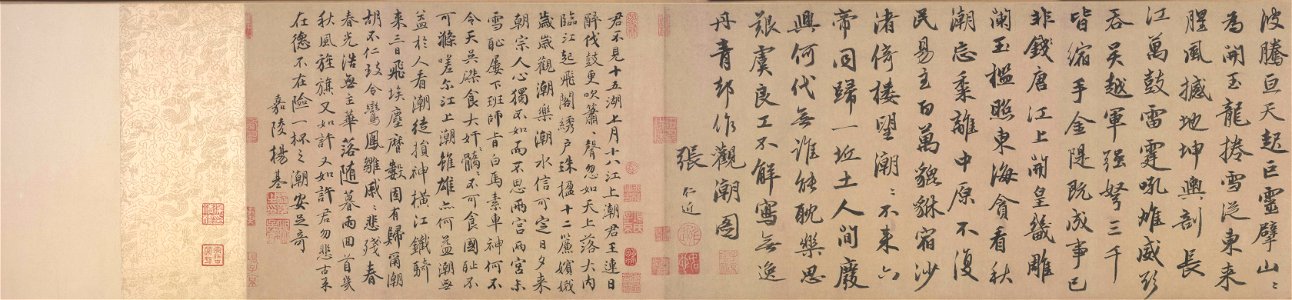 波騰亘天起巨靈擘山〻
為開玉龍捲雪從東来
腥風撼地坤輿剖長
江萬鼓雷霆吼雄威欲
吞吳越軍强弩三千
皆縮手金隄既成事已
非錢唐江上開皇畿雕
闌玉檻照東海貪看秋
潮忘黍離中原不復
民易主百萬貔貅宿沙
渚倚樓望潮〻不来六
帝同歸一丘土人間廢
興何代無誰能耽樂思
艱虞良工不解寫無逸
丹青却作觀潮圖
張仁近
君不見十五湖上月十八江上潮君王連日
醉伐鼓更吹簫〻聲忽如天上落大内
臨江起飛閣綉户珠櫳十二簾嬪娥
歲歲觀潮樂潮水信可定日夕来
朝宗人心獨不如而不思兩宮兩宮未
雪恥屢下班師旨白馬素車神何不
令天吳磔食大奸髓〻不可食國恥不
可滌嗟尔江上潮雖雄亦何益潮無
益於人看潮徒損神橫江鐵騎
来三日飛埃塵曆數固有歸甯潮
胡不仁玆令鸞鳳雛戚〻悲殘春
春光浩無主華落隨暮雨回首幾
秋風旌旗又如許又如許君勿悲古来
在德不在險一抔之潮安足奇
嘉陵楊基